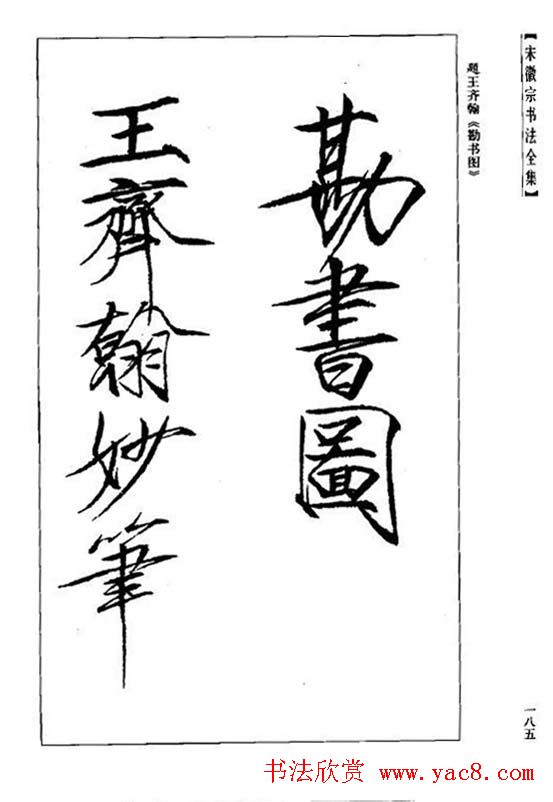 【宋徽宗书法全集】
题王齐翰《勘书图》
勘書圖
王齊翰妙筆
一八五
书法欣赏 www.yac8.com